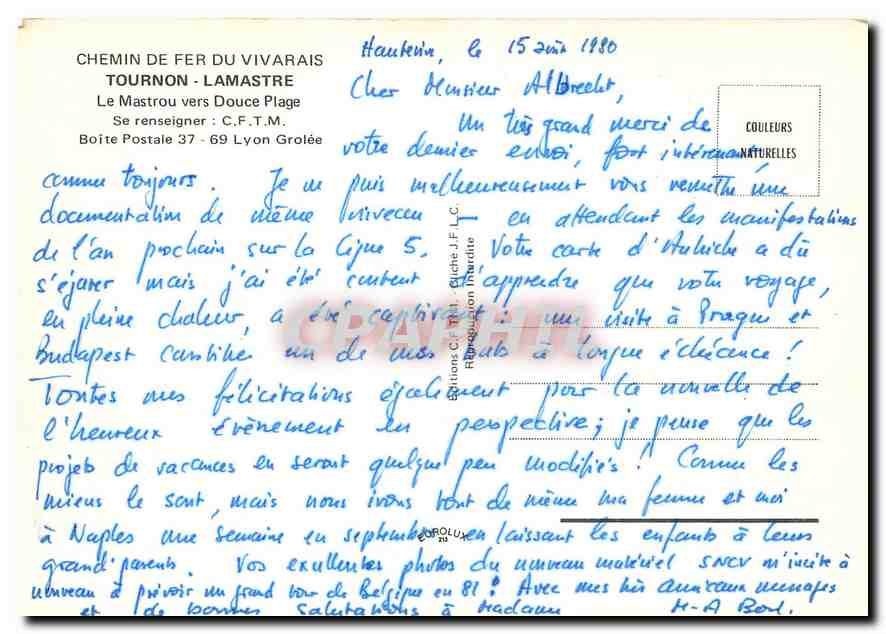 CHEMIN DE FER DU VIVARAIS
TOURNON - LAMASTRE
Le Mastrou vers Douce Plage
Se renseigner : C.F.T.M.
Boîte Postale 37 - 69 Lyon Grolée
COULEURS
NATURELLES
Editions C.F.T.M. - Cliché J.F.L.C.
Reproduction Interdite
EUROLUX
CPAPHIL
Hauterive, le 15 août 1980
Cher Monsieur Albrecht,
Un très grand merci de
votre dernier envoi, fort intéressant,
comme toujours. Je ne puis malheureusement vous remettre une
documentation de même niveau — en attendant les manifestations
de l'an prochain sur la ligne 5. Votre carte d'Autriche a dû
s'égarer mais j'ai été content d'apprendre que votre voyage,
en pleine chaleur, a été captivant : une visite à Prague et
Budapest constitue un de mes buts à longue échéance !
Toutes mes félicitations également pour la nouvelle de
l'heureux évènement en perspective ; je pense que les
projets de vacances en seront quelque peu modifiés ! Comme les
miens le sont, mais nous irons tout de même ma femme et moi
à Naples une semaine en septembre en laissant les enfants à leurs
grand-parents. Vos excellentes photos du nouveau matériel SNCV m'incite à
nouveau à prévoir un grand tour de Belgique en 81 ! Avec mes très amicaux messages
et de bonnes salutations à Madame H-A